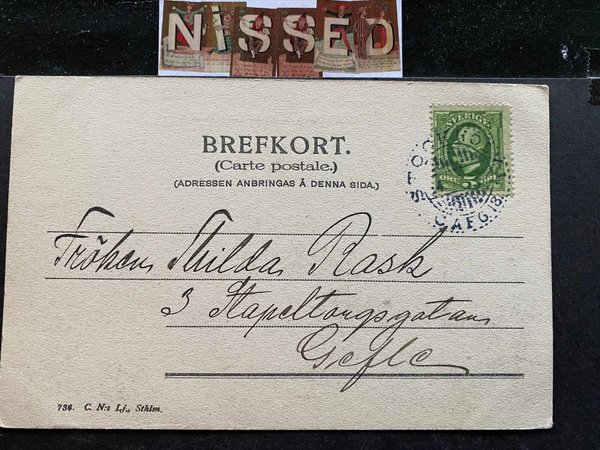 NiSSED
BREFKORT.
(Carte postale.)
(ADRESSEN ANBRINGAS Å DENNA SIDA.)
SVERIGE
5
Fröken Thilda Rask
3 Stapeltorgsgatan
Gefle
736. C. N:s Lj., Sthlm.